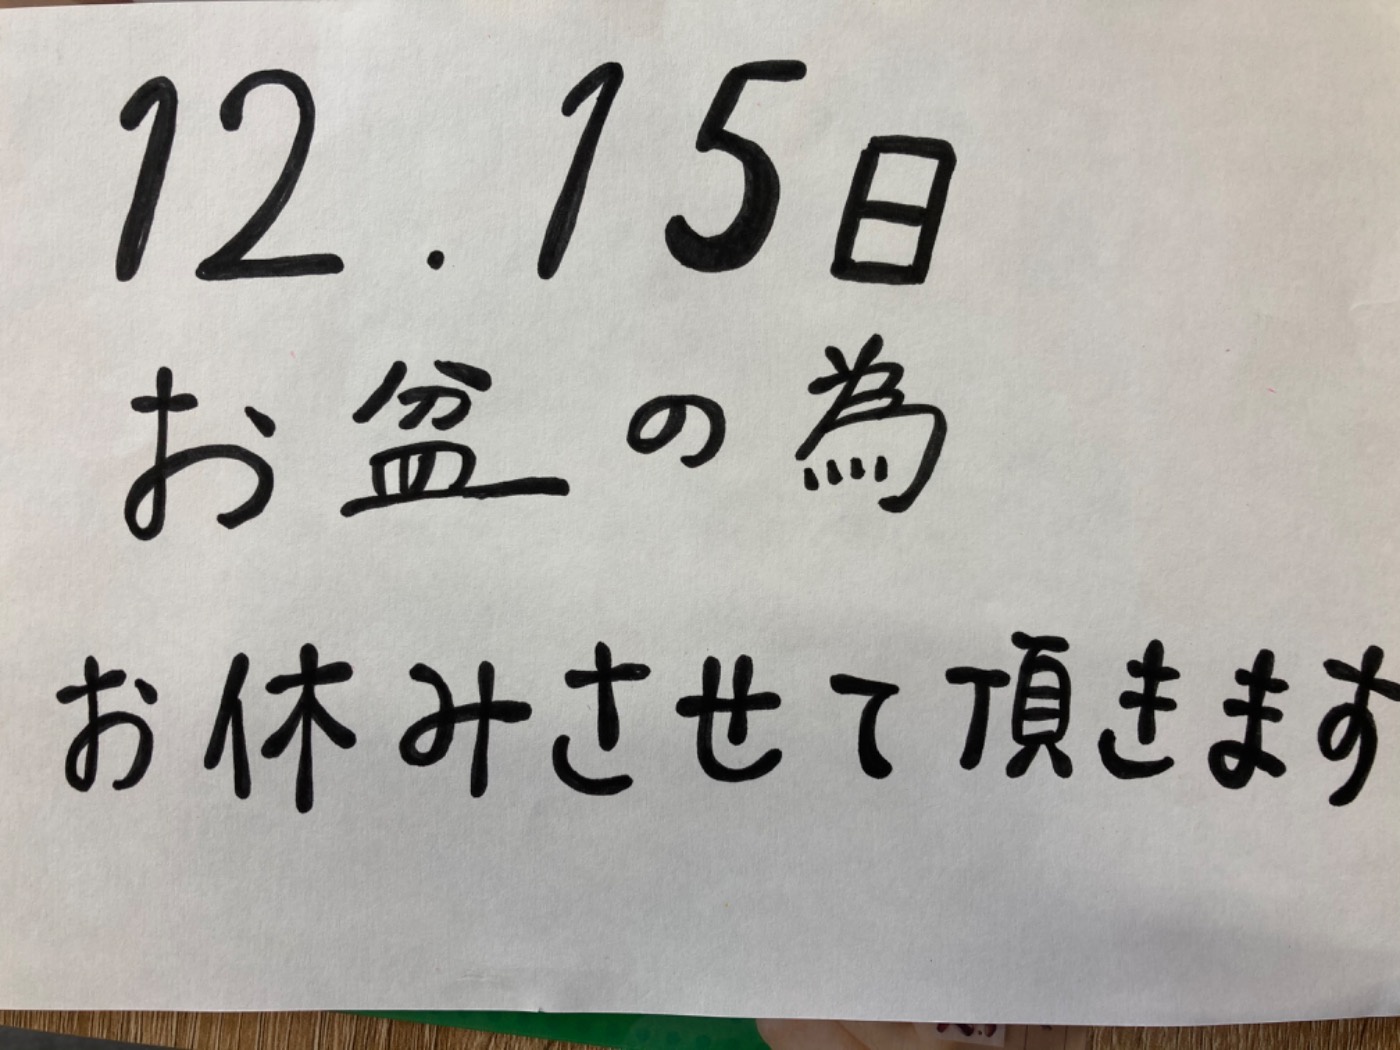 12.15日
お盆の為
お休みさせて頂きます